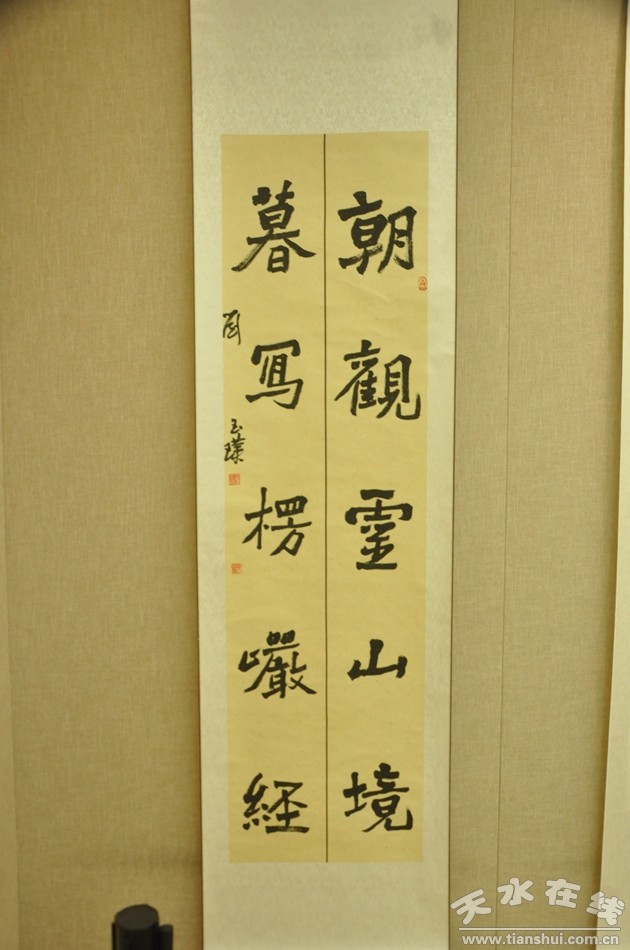 朝觀靈山境
暮寫楞巖經
玉璞
天水在线
www.tianshui.com.cn